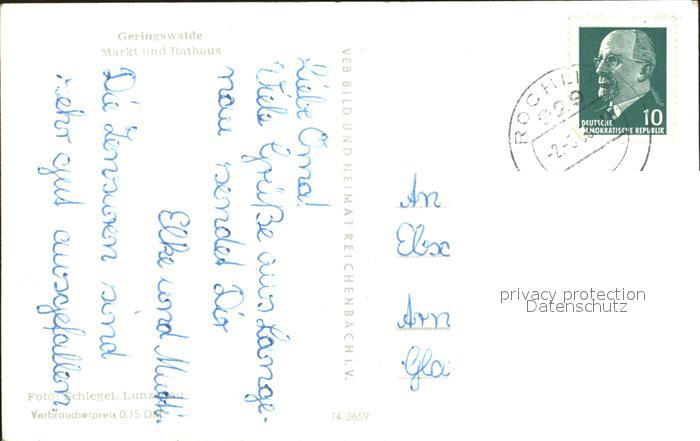 Geringswalde
Markt und Rathaus
Liebe Oma!
Viele Grüße aus Lange-
nau sendet Dir
Elke und Mutti.
Die Zensuren sind
sehr gut ausgefallen.
Foto: Schlegel, Lunzenau
Verbraucherpreis 0.15 DM
VEB BILD UND HEIMAT REICHENBACH I. V.
14/3659
ROCHLI
DEUTSCHE
DEMOKRATISCHE REPUBLIK
10
An
Arn
Gla
privacy protection
Datenschutz